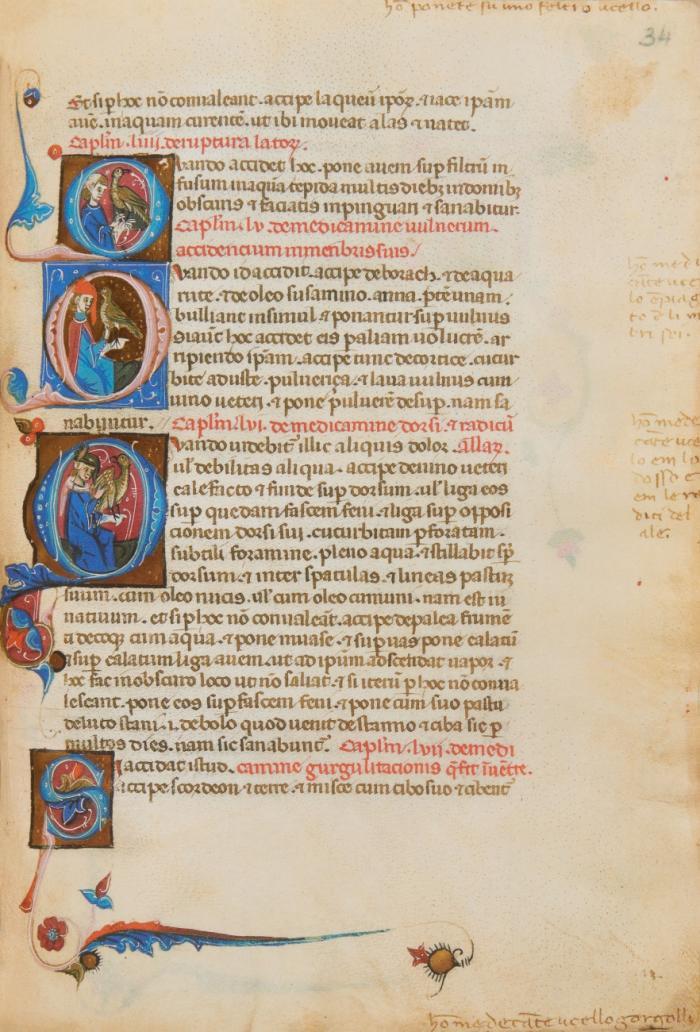 hō ponete su uno feltro ucello.
34
Et si p hoc nō conualeant. accipe laqueū ipoꝝ. ⁊ iace ipam
auē. in aquam currentē. ut ibi moueat alas ⁊ natet.
Caplm. liiii. de ruptura latoꝝ.
Quando accidet hoc. pone auem sup filtrū in
fusum in aqua tepida multis diebꝫ in domibꝫ
obscuris ⁊ faciatis inpinguari ⁊ sanabitur.
Caplm. lv. de medicamine uulnerum.
accidencium in menbris suis.
Quando id accidit. accipe de borach. ⁊ de aqua
rute. ⁊ de oleo susamino. anna. ptē unam.
bulliant insimul ⁊ ponantur sup uulnus
si aut hoc accidet eis p aliam uolucrē. ar
ripiendo ipam. accipe tunc de cortice. cucur
bite aduste. puluerica. ⁊ laua uulnus cum
uino ueteri. ⁊ pone puluerē desup. nam sa
nabuntur. Caplm. lvi. de medicamine dorsi. ⁊ radicū
Quando uidebit illic aliquis dolor. allaꝝ.
ul debilitas aliqua. accipe de uino ueteri
calefacto ⁊ funde sup dorsum. ul liga eos
sup quedam fascem feni. ⁊ liga sup opposi
cionem dorsi sui. cucurbitam pforatam.
subtili foramine. pleno aqua. ⁊ stillabit sp
dorsum. ⁊ inter spatulas. ⁊ lineas pastū
suum. cum oleo nucis. ul cum oleo cumuni. nam est iu
natiuum. et si p hoc nō conualeāt. accipe de palea frumē
ti decoq cum aqua. ⁊ pone in uase. ⁊ sup uas pone calatū
⁊ sup calatum liga auem. ut ad ipm adscendat uapor. ⁊
hoc fac in obscuro loco ut nō saliat. ⁊ si iterū p hoc nō conua
lescant. pone eos sup fascem feni. ⁊ pone cum suo pastu
de luto stani. i. de bolo quod uenit de stanno ⁊ ciba sic p
multos dies. nam sic sanabunt. Caplm. lvii. de medi
Si accidat istud. camine gurgulitacionis q̄ fit ī uētre.
accipe scordeon ⁊ terre. ⁊ misce cum cibo suo ⁊ cibent
hō med
lo
hō mede
cāte uce
lo em lo
dosso e
em le ra
dici del
ale.
hō medecāte ucello gorgolli